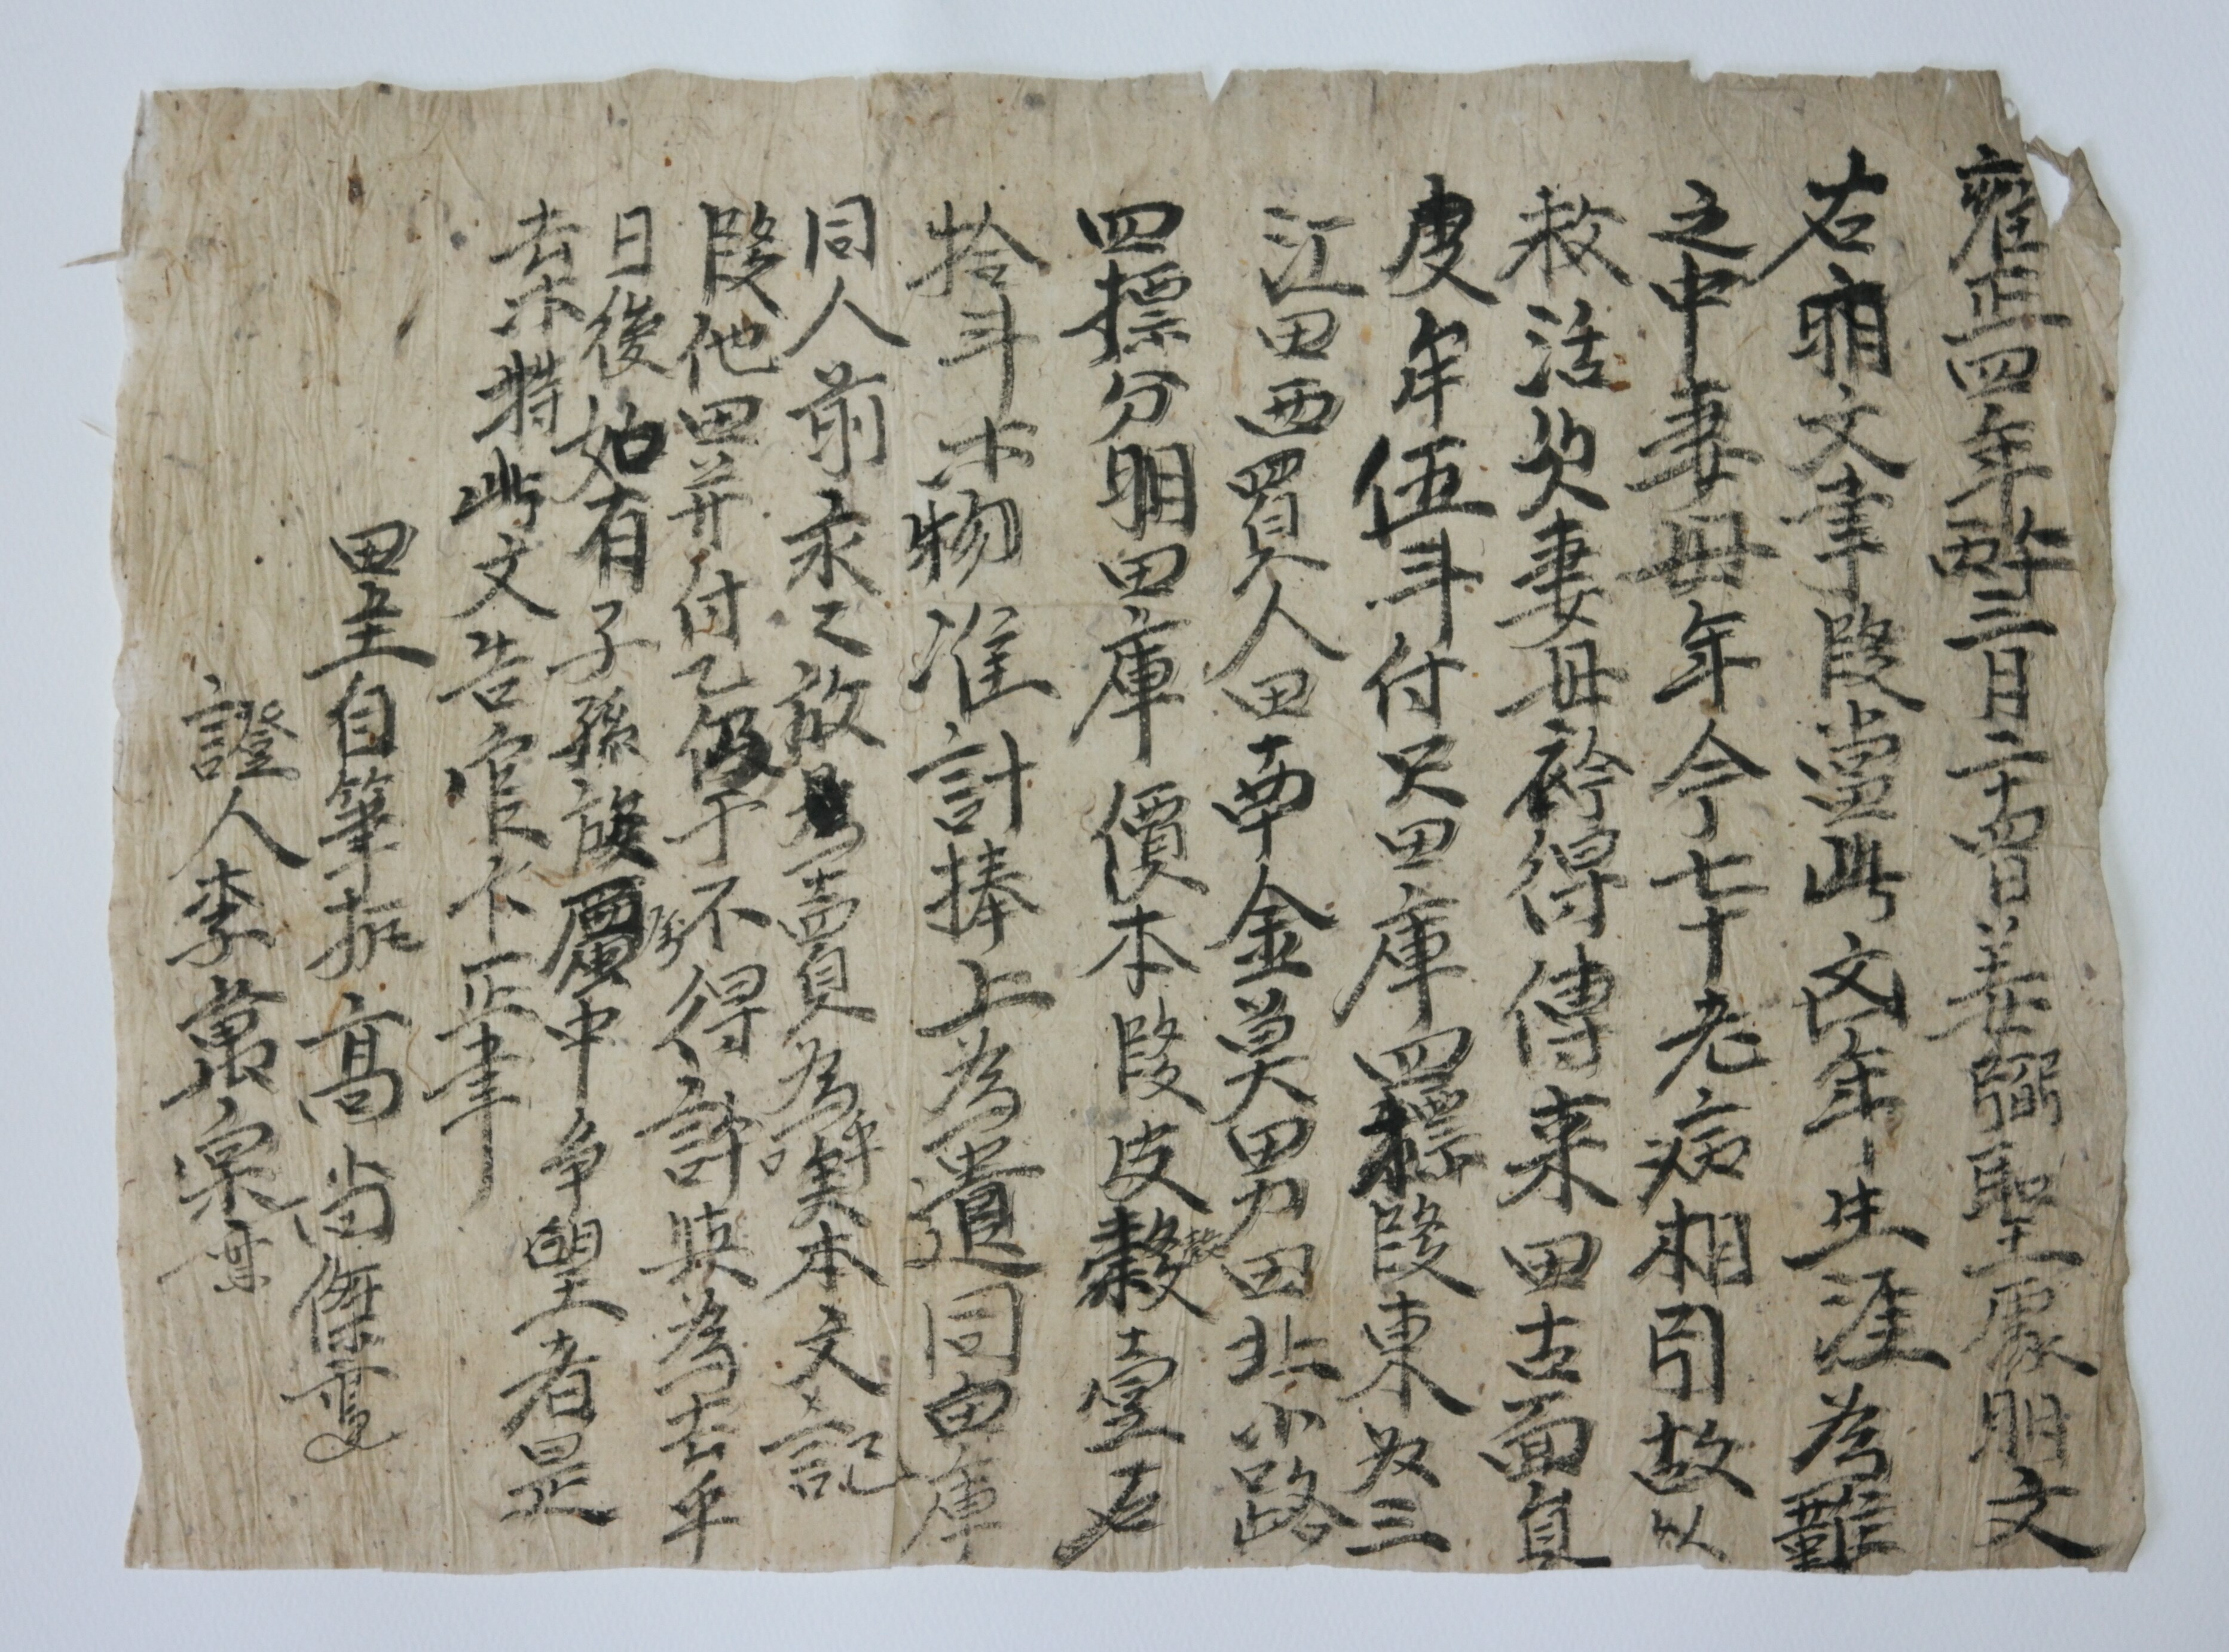 雍正四年三月二十四日姜弼聖處明文
右明文事段當此凶年生涯為難
之中妻母年今七十老病相引故以
救活次妻母衿得傳来田古面員
皮牟伍斗付只田庫四標段東以三
江田西買人田南金莫男田北小路
四標分明田庫價本段皮穀壹石
拾斗以物准計捧上為遣同田庫
同人前永永放賣為喩本文記
段他田并付乙仍于不得許與為去乎
日後如有子孫族屬中争望者是
去木持此文告官卞正事
田主自筆執高尚傑
證人李萬宗